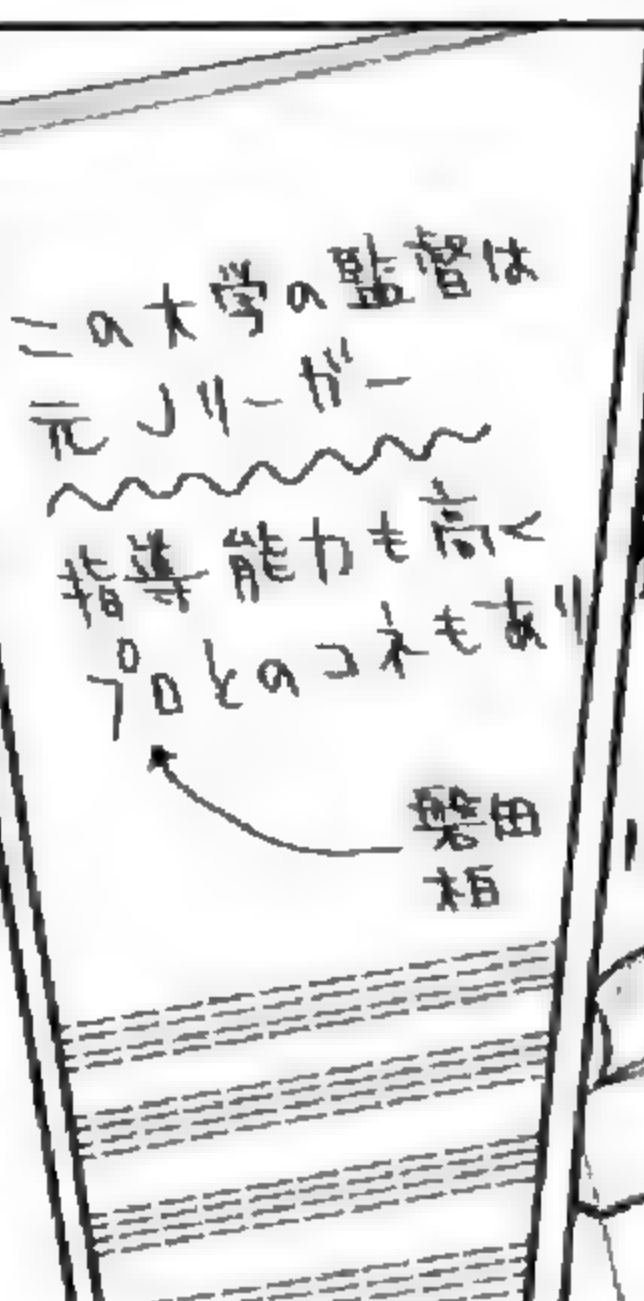 この大学の監督は
元Jリーガー
指導能力も高く
プロとのコネもあり
磐田
柏